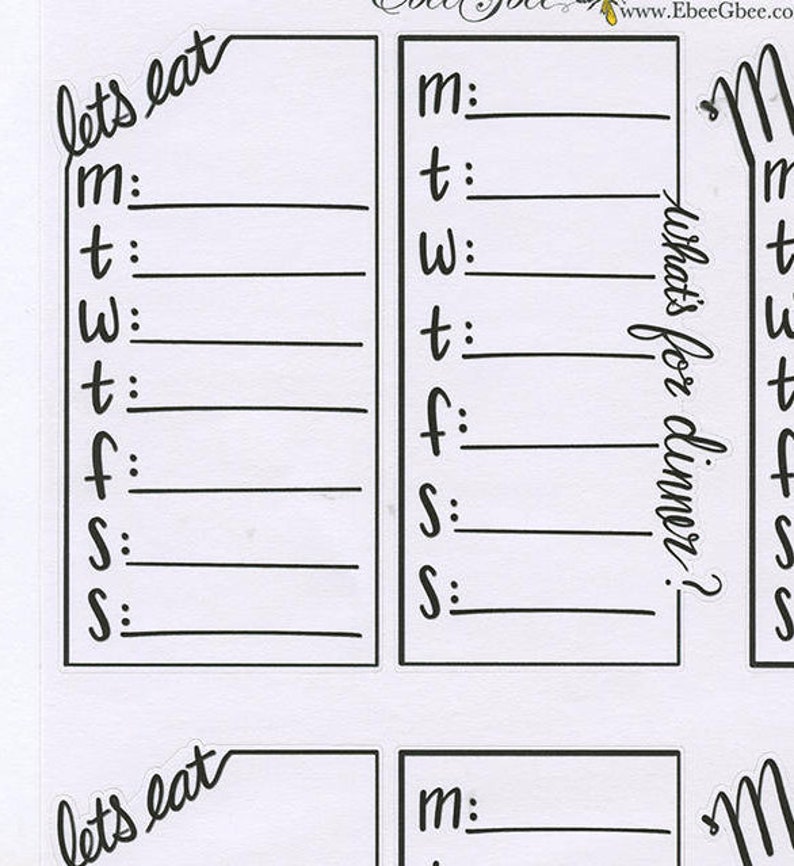 EbeeGbee
www.EbeeGbee.co
lets eat
m:
t:
w:
t:
f:
s:
s:
m:
t:
w:
t:
f:
s:
s:
what's for dinner?
M
m
t
w
t
f
s
s
lets eat
m:
M